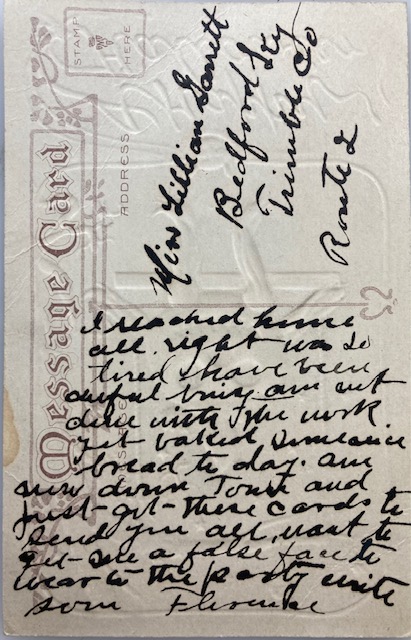 STAMP
HERE
Message Card
ADDRESS
Miss Lillian Garrett
Bedford Ky
Trimble Co
Route 2
I reached home
all right was so
tired I have been
awful busy am not
done with the work
yet baked some
bread to day. am
now down Town and
just got these cards to
send you all, want to
get me a false face to
wear to the party write
soon Florence